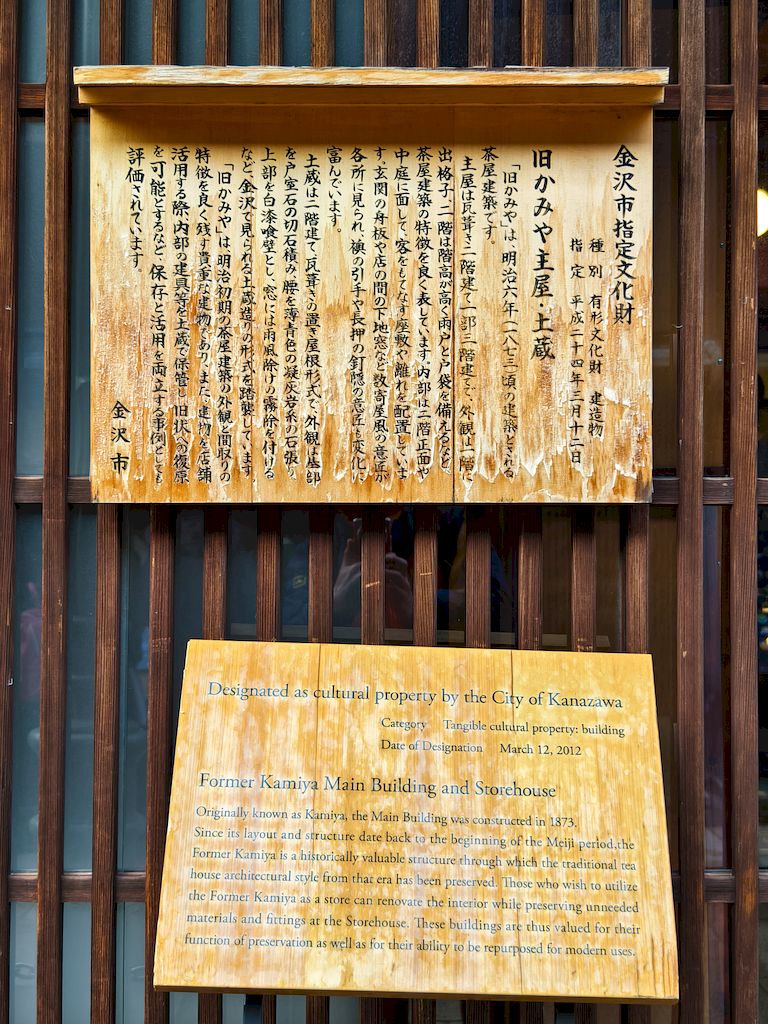 金沢市指定文化財
種別 有形文化財 建造物
指定 平成二十四年三月十二日
旧かみや主屋・土蔵
「旧かみや」は、明治六年（一八七三）頃の建築とされる
茶屋建築です。
主屋は瓦葺き二階建て一部三階建てで、外観は一階に
出格子、二階は階高が高く雨戸と戸袋を備えるなど
茶屋建築の特徴を良く表しています。内部は二階正面や
中庭に面して、客をもてなす座敷や離れを配置していま
す。玄関の舟板や店の間の下地窓など数寄屋風の意匠が
各所に見られ、襖の引手や長押の釘隠の意匠も変化に
富んでいます。
土蔵は二階建て、瓦葺きの置き屋根形式で、外観は基部
を戸室石の切石積み、腰を薄青色の凝灰岩系の石張り、
上部を白漆喰壁とし、窓には雨風除けの霧除を付ける
など、金沢で見られる土蔵造りの形式を踏襲しています。
「旧かみや」は、明治初期の茶屋建築の外観と間取りの
特徴を良く残す貴重な建物であり、また、建物を店舗
活用する際、内部の建具等を土蔵で保管し、旧状への復原
を可能とするなど、保存と活用を両立する事例としても
評価されています。
金沢市
Designated as cultural property by the City of Kanazawa
Category Tangible cultural property: building
Date of Designation March 12, 2012
Former Kamiya Main Building and Storehouse
Originally known as Kamiya, the Main Building was constructed in 1873.
Since its layout and structure date back to the beginning of the Meiji period,the
Former Kamiya is a historically valuable structure through which the traditional tea
house architectural style from that era has been preserved. Those who wish to utilize
the Former Kamiya as a store can renovate the interior while preserving unneeded
materials and fittings at the Storehouse. These buildings are thus valued for their
function of preservation as well as for their ability to be repurposed for modern uses.